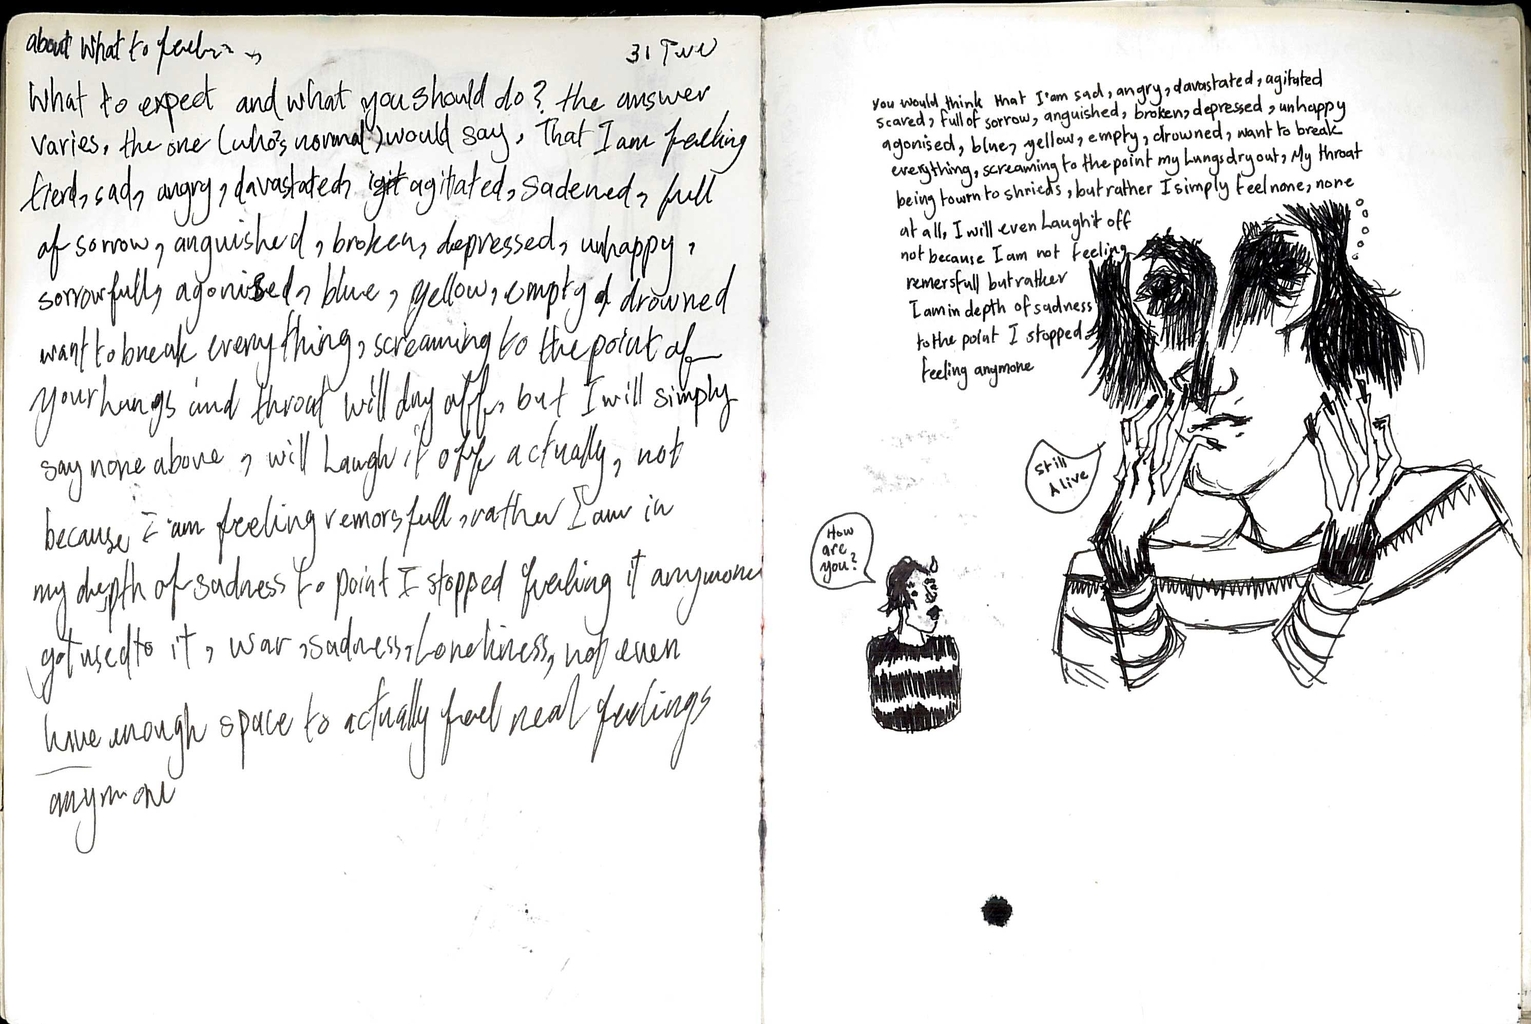 about what to feel
31
What to expect and what you should do? the answer
varies, the one (who's normal) would say, That I am feeling
tierd, sad, angry, davastated, agitiated, sadened, full
of sorrow, anguished, broken, depressed, unhappy,
sorrowfull, agonised, blue, yellow, empty, drowned
want to break everything, screaming to the point of
your lungs and throat will dry off, but I will simply
say none above, will Laugh it off actually, not
because I am feeling remorsfull, rather I am in
my depth of sadness to point I stopped feeling it anymore
got used to it, war, sadness, Loneliness, not even
have enough space to actually feel real feelings
anymore
you would think that I'am sad, angry, davastated, agitated
scared, full of sorrow, anguished, broken, depressed, unhappy
agonised, blue, yellow, empty, drowned, want to break
everything, screaming to the point my Lungs dry out, My throat
being town to shrieds, but rather I simply feel none, none
at all, I will even Laugh it off
not because I am not feeling
remersfull but rather
I am in depth of sadness
to the point I stopped
feeling anymore
Still
Alive
How
are
you?